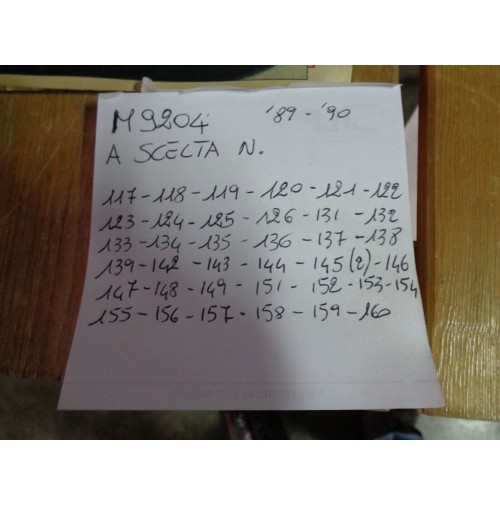 M9204 '89 - '90
A SCELTA N.
117 - 118 - 119 - 120 - 121 - 122
123 - 124 - 125 - 126 - 131 - 132
133 - 134 - 135 - 136 - 137 - 138
139 - 142 - 143 - 144 - 145 (2) - 146
147 - 148 - 149 - 151 - 152 - 153 - 154
155 - 156 - 157 - 158 - 159 - 160